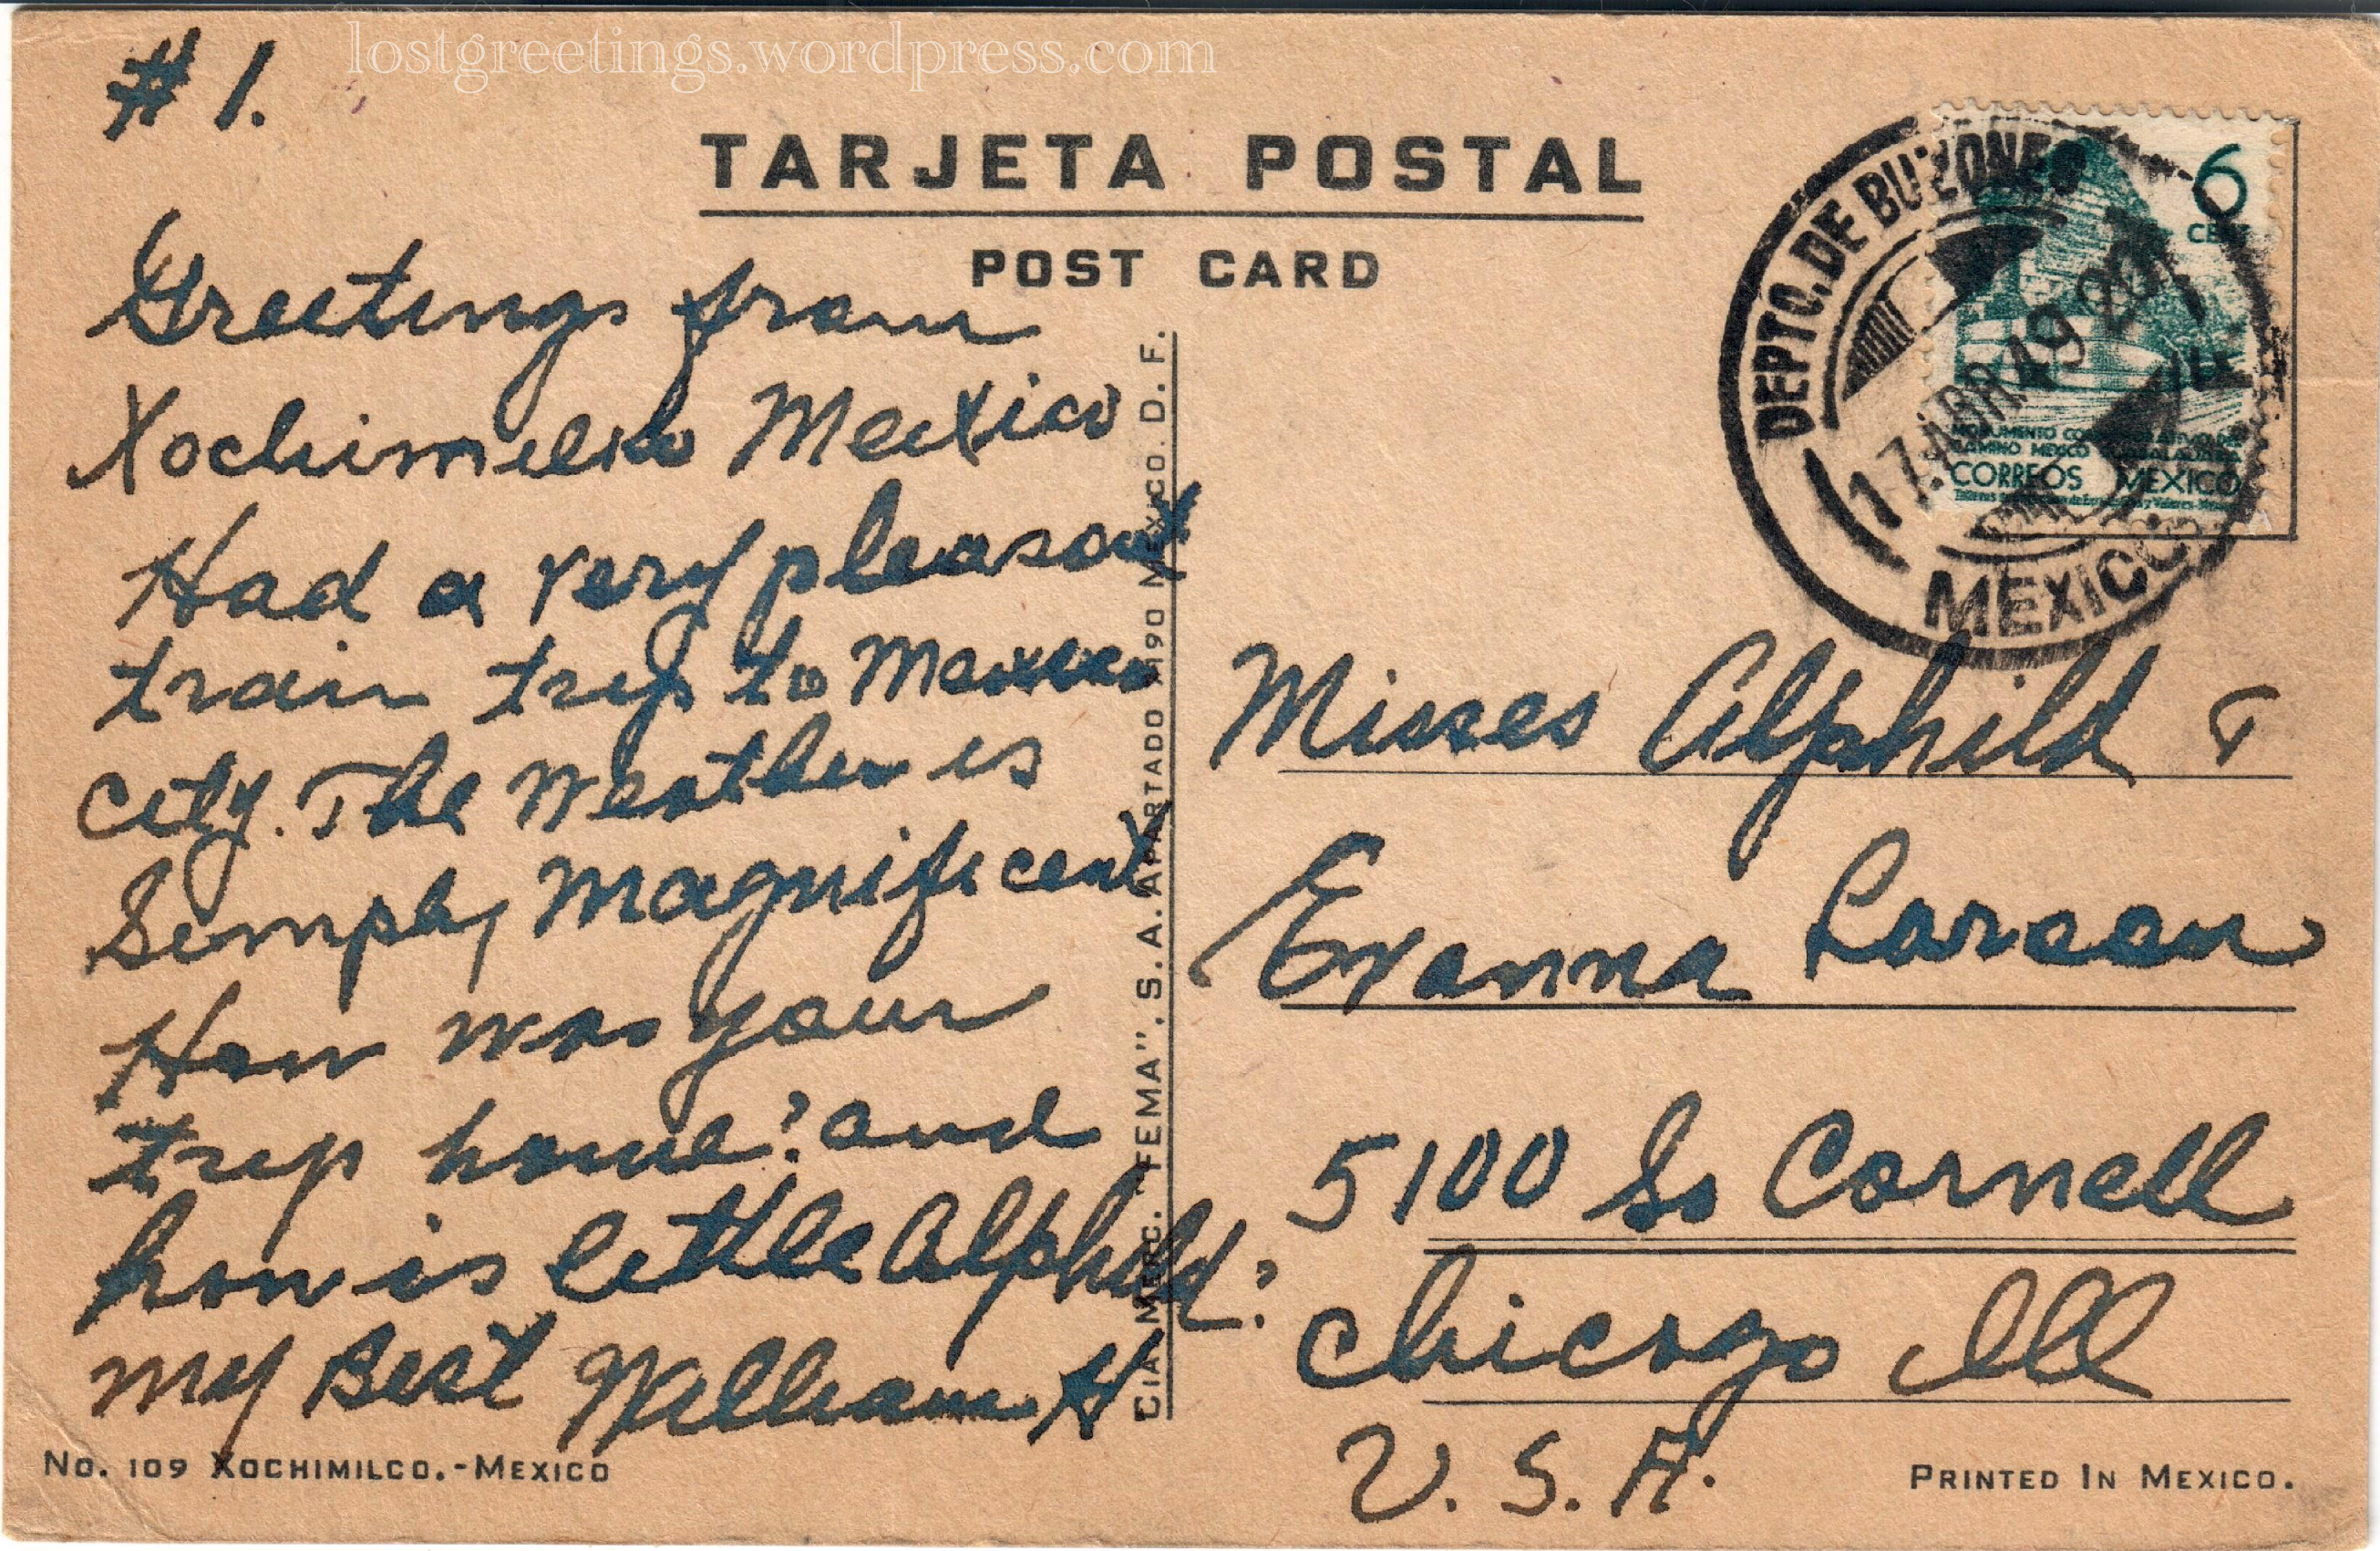 lostgreetings.wordpress.com
# 1.
TARJETA POSTAL
POST CARD
Greetings from
Xochimilco Mexico
Had a very pleasant
train trip to Mexico
City. The Weather is
Simply Magnificent
How was your
trip home? and
how is little Alphild?
My Best William H
No. 109 XOCHIMILCO.-MEXICO
CIA. MERC. "FEMA", S. A. APARTADO 1190 MEXICO. D. F.
DEPTO. DE BUZONES
17 ABR 49 20
MEXICO
6
CENT
MONUMENTO CONMEMORATIVO DEL
CAMINO MEXICO GUADALAJARA
CORREOS MEXICO
Misses Alphild &
Evanna Larson
5100 So Cornell
Chicago Ill
U. S. A.
PRINTED IN MEXICO.